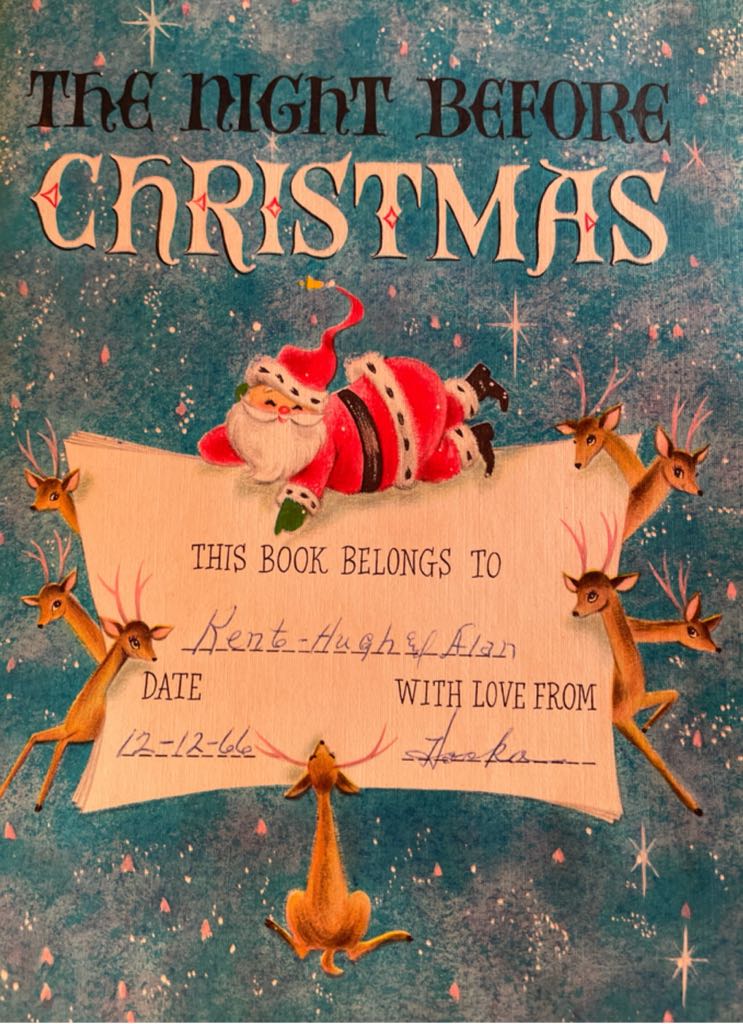 THE NIGHT BEFORE
CHRISTMAS
THIS BOOK BELONGS TO
Kent-Hugh & Alan
DATE
WITH LOVE FROM
12-12-66